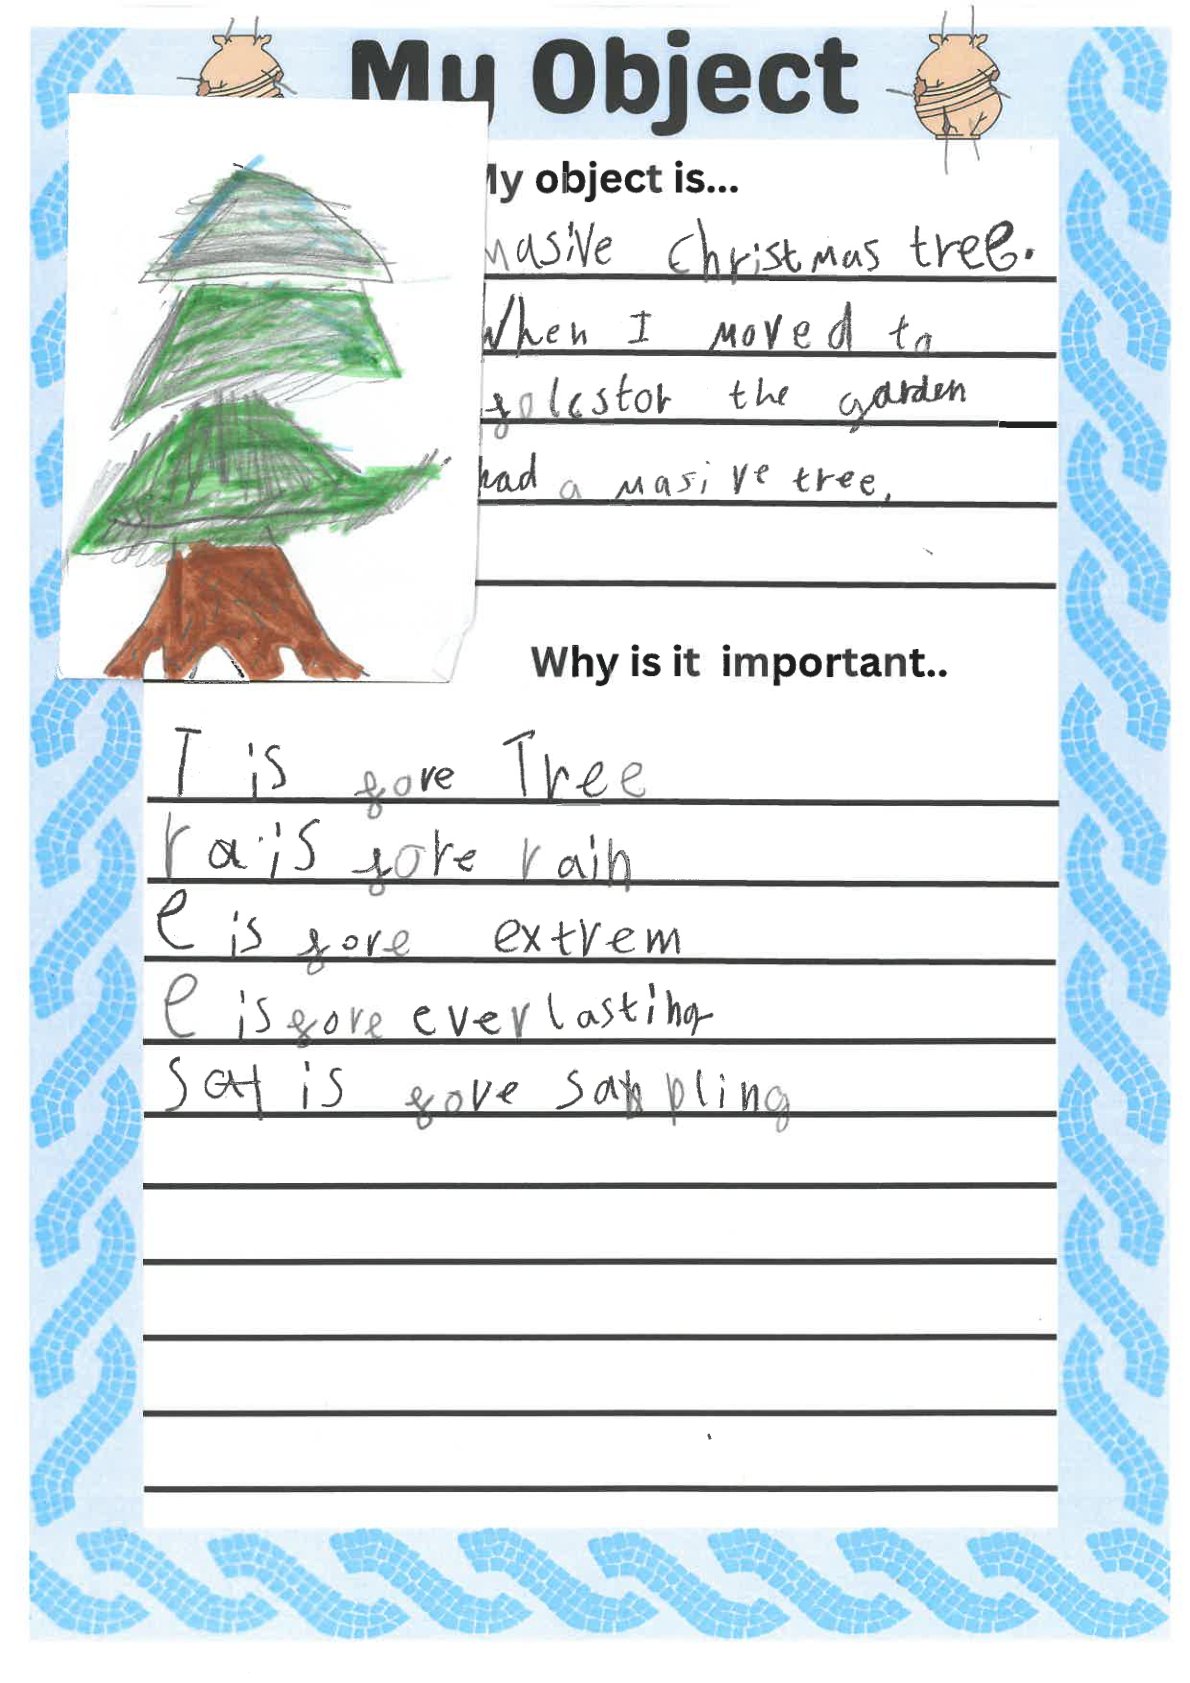 My Object
My object is...
masive christmas tree.
When I moved to
folcstor the garden
had a masive tree.
Why is it important..
T is fore Tree
r a is fore rain
e is fore extrem
e is fore everlasting
is fore